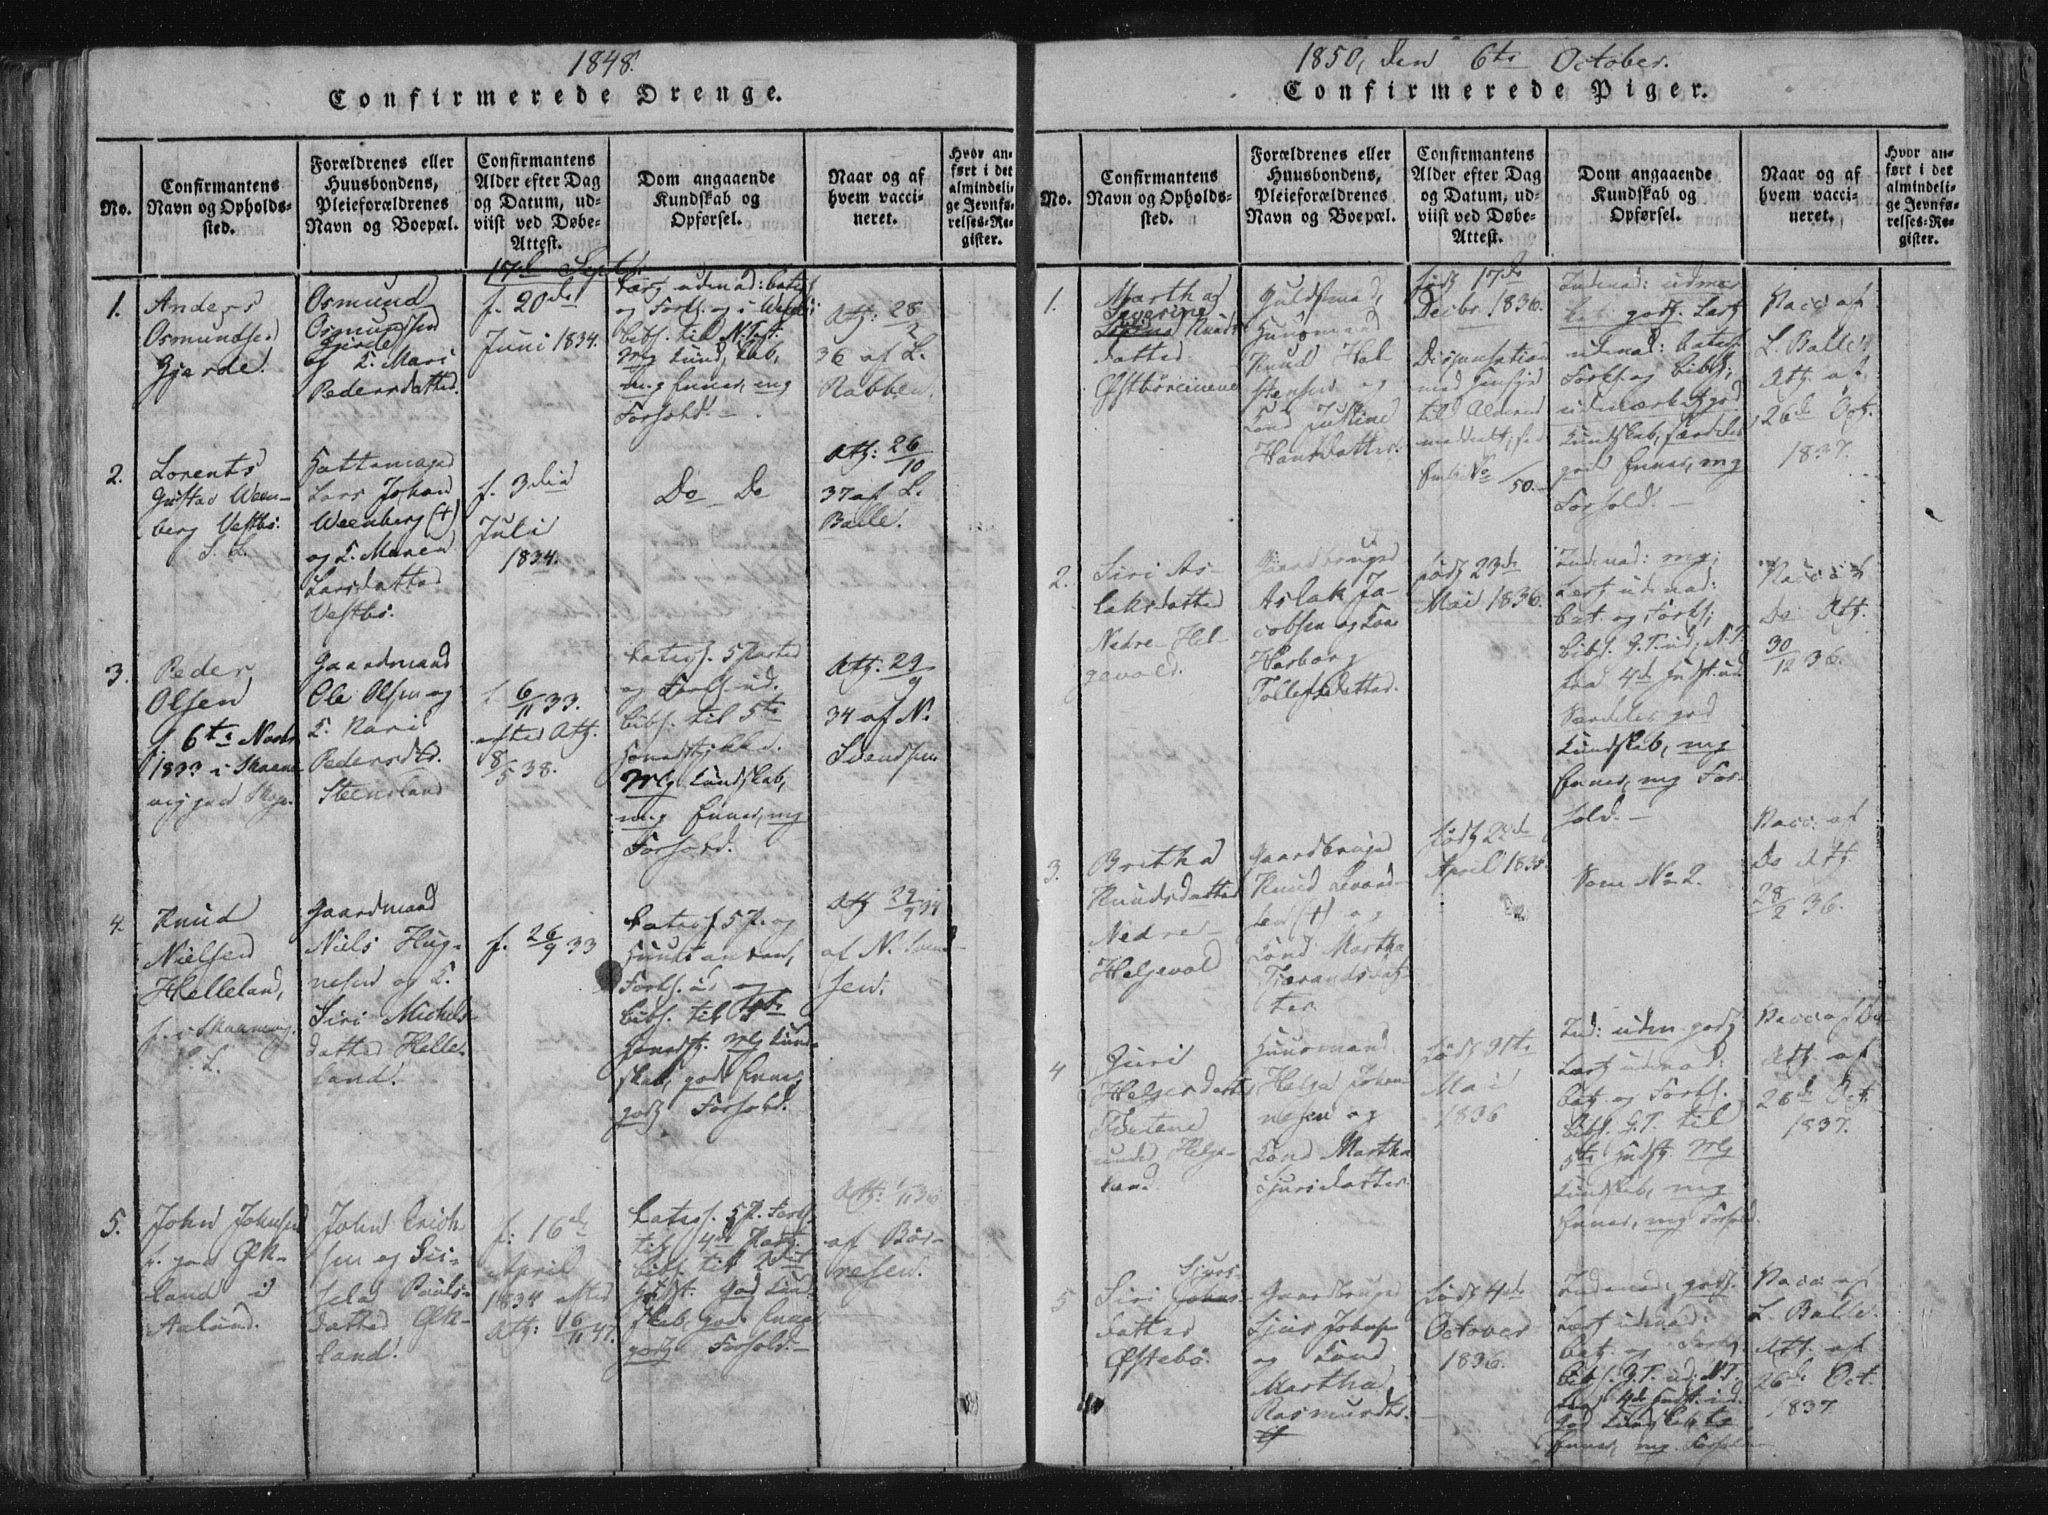 1848.
Confirmerede Drenge.
No.
Confirmantens
Navn og Opholds-
sted.
Forældrenes eller
Huusbondens,
Pleieforældrenes
Navn og Boepæl.
Confirmantens
Alder efter Dag
og Datum, ud-
viist ved Døbe-
Attest.
Dom angaaende
Kundskab og
Opførsel.
Naar og af
hvem vacci-
neret.
Hvor an-
ført i det
almindeli-
ge Jevnfø-
relses-Re-
gister.
17de Septbr
1.
Anders
Osmundsen
Gjerde.
Osmund
Osmundsen
Gjerde
og K. Mari
Pedersdatter.
f. 20de
Juni 1834.
og Forkl. og i
bibl. til N. Test.
mg Kundskab,
mg Evner, mg
Forhold.
Att: 28/2
36 af L.
Rabben.
2.
Lorents
Gustav Ween-
berg Vestbö.
S. L.
Hattemager
Lars Johan
Weenberg (+)
og K. Maren
Larsdatter
Vestbö.
f. 3die
Juli
1834.
Do Do
Att: 26/10
37 af L.
Balle.
3.
Peder
Olsen
f. 6te Novbr
1833 i Skaane-
Gaardmand
Ole Olsen og
K. Kari
Pedersdtr.
Steensland
f. 6/11 33.
efter Att.
8/5 38.
Catech. 5 Parter
og Forkl. ud.
bibl. til 5te
Hovedstykke.
Mg Kundskab,
mg Evner, mg
Forhold.
Att: 29/9
34 af N.
Svendsen
4.
Knud
Nielsen
Helleland,
f. i Skaanevig.
S. L.
Gaardmand
Niels Hog-
nesen og K.
Siri Michels-
datter Helle-
land.
f. 26/9 33
Catech. 5 P. og
Forkl. ud og
bibl. til 5te
Hovedst. Mg Kund-
skab, gode Evner,
godt Forhold.
Att 29/9 34
af N. Svend-
sen.
5.
John Johnsen
f. paa Øk-
land i
Aalund.
John Erich-
sen og Gis-
sela Pouls-
datter Øk-
land.
f: 16de
April
1834 efter
Att: 6/11 47.
Catech. 5 P. Forkl.
til 4de Part.
bibl. til 2det
Hovedst. God Kund-
skab, gode Evner,
godt Forhold.
Att: 1/11 36
af Bör-
resen.
1850, den 6te October.
Confirmerede Piger.
No.
Confirmantens
Navn og Opholds-
sted.
Forældrenes eller
Huusbondens,
Pleieforældrenes
Navn og Boepæl.
Confirmantens
Alder efter Dag
og Datum, ud-
viist ved Døbe-
Attest.
Dom angaaende
Kundskab og
Opførsel.
Naar og af
hvem vacci-
neret.
Hvor an-
ført i det
almindeli-
ge Jevnfø-
relses-Re-
gister.
1.
Martha
Severine
Knuds-
datter
Guldsmed,
Huusmand
Knud Hal-
stensen og
Kone Justine
Hansdatter.
født 17de
Decbr 1836.
Dispensation
med Hensyn
til Alderen
meddelt,
Indenad: udmær-
ket godt. Lært
udenad: Catech.
Forkl. og Bibl;
udmærket god
Kundskab, særdeles
gode Evner, mg
Forhold.
Vacc: af
L. Balle.
Att. af
26de Oct.
1837.
2.
Siri As-
laksdatter
Nedre Hel-
gevold.
Gaardbruger
Aslak Ja-
cobsen og Kone
Herborg
Tollefsdatter.
født 23de
Mai 1836.
Indenad: mg;
Lært udenad:
Cat. og Forkl;
bibl. G. T. ud, N. T.
fra 4de Hovdst. ud
Særdeles god
Kundskab, mg
Evner, mg For-
hold.
Vacc: af
Do Att.
30/12 36.
3.
Britha
Knudsdatter
Nedre
Helgevold
Gaardbruger
Knud
sen (+) og
Kone Martha
Tærandsdat-
ter.
født 22de
April 1835
Som No 2.
Vacc. af
Do Att
28/2 36.
4
Guri
Helgesdatter
under Helge-
land.
Huusmand
Helge Johan-
nesen og
Kone Martha
Sjursdatter.
født 31te
Mai
1836
Ind: uden godt
Lært udenad:
Cat. og Forkl.
bibl. G. T. til
5te Hovdst. Mg
Kundskab, mg
Evner, mg Forhold.
Vacc af Do
Att. af
26de Oct.
1837.
5
Siri Sjurs-
datter
Østebö.
Gaardbruger
Sjur Johns.
og Kone
Martha
Rasmusdtr.
født 4de
October
1836.
Indenad: godt.
Lært udenad:
Cat. og Forkl.
bibl. G. T. ud; N. T.
fra 4de Hovdst. ud.
God Kundskab,
Evner, mg Forhold.
Vacc af
L. Balle.
Att. af
26de Oct.
1837.